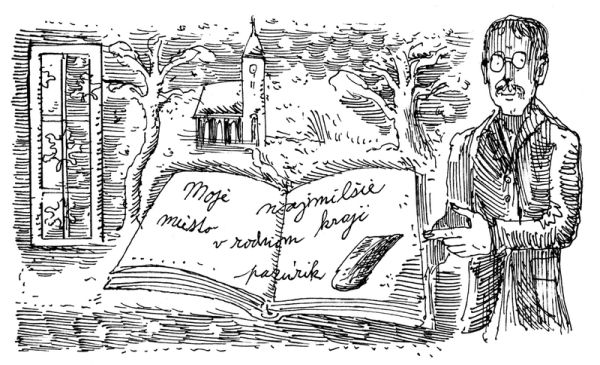 Moje najmilšie
miesto v rodnom kraji
pazúrik